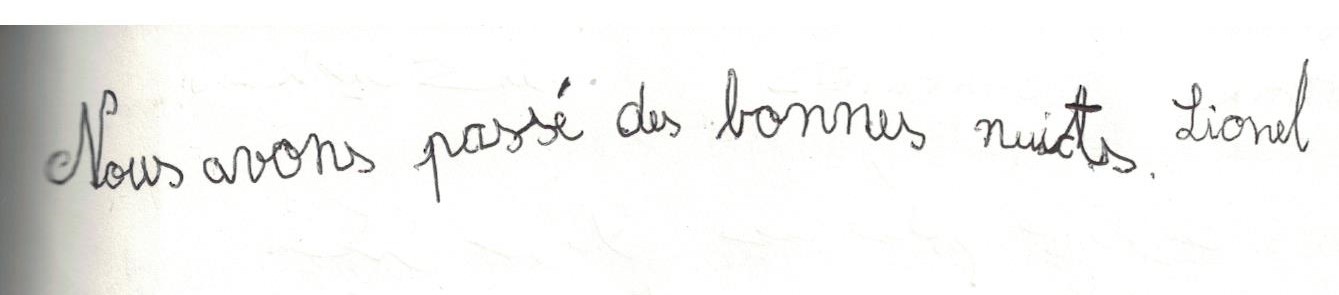 Nous avons passé des bonnes nuits. Lionel